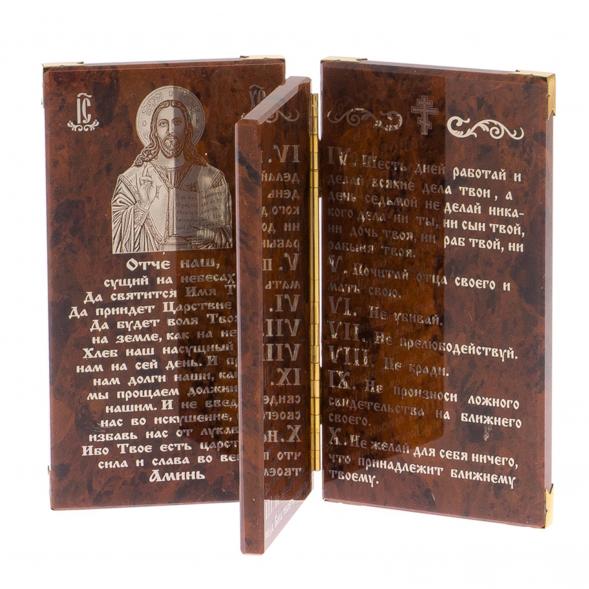 ІС
Отче наш,
сущий на небесах
Да святится Имя Т
Да приидет Царствие
Да будет воля Тво
на земле, как на не
Хлеб наш насущный
нам на сей день. И п
нам долги наши, ка
мы прощаем должни
нашим. И не введ
нас во искушение,
избавь нас от лука
Ибо Твое есть царст
сила и слава во ве
Аминь
VI. Шесть дней работай и
делай всякие дела твои, а
день седьмой не делай ника-
кого дела ни ты, ни сын твой,
ни дочь твоя, ни раб твой, ни
рабыня твоя.
V. Почитай отца своего и
мать свою.
VI. Не убивай.
VII. Не прелюбодействуй.
VIII. Не кради.
IX. Не произноси ложного
свидетельства на ближнего
своего.
X. Не желай для себя ничего,
что принадлежит ближнему
твоему.